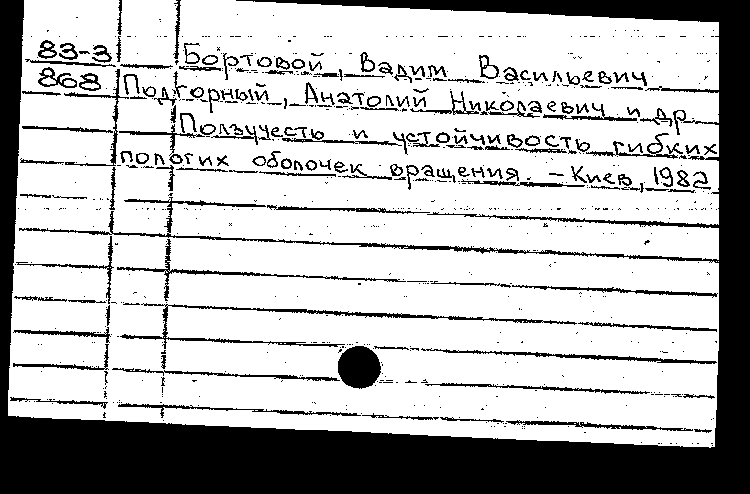 83-3 Бортовой, Вадим Васильевич
868 Подгорный, Анатолий Николаевич и др.
Ползучесть и устойчивость гибких
пологих оболочек вращения. – Киев, 1982